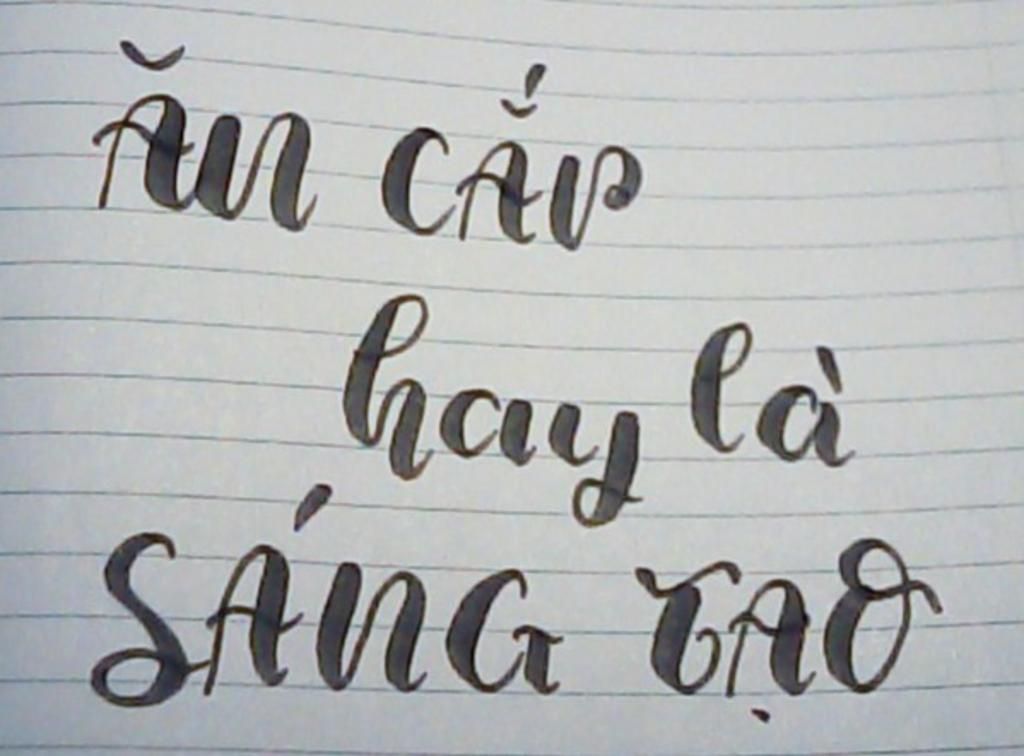 ĂN CẮP
hay là
SÁNG TẠO